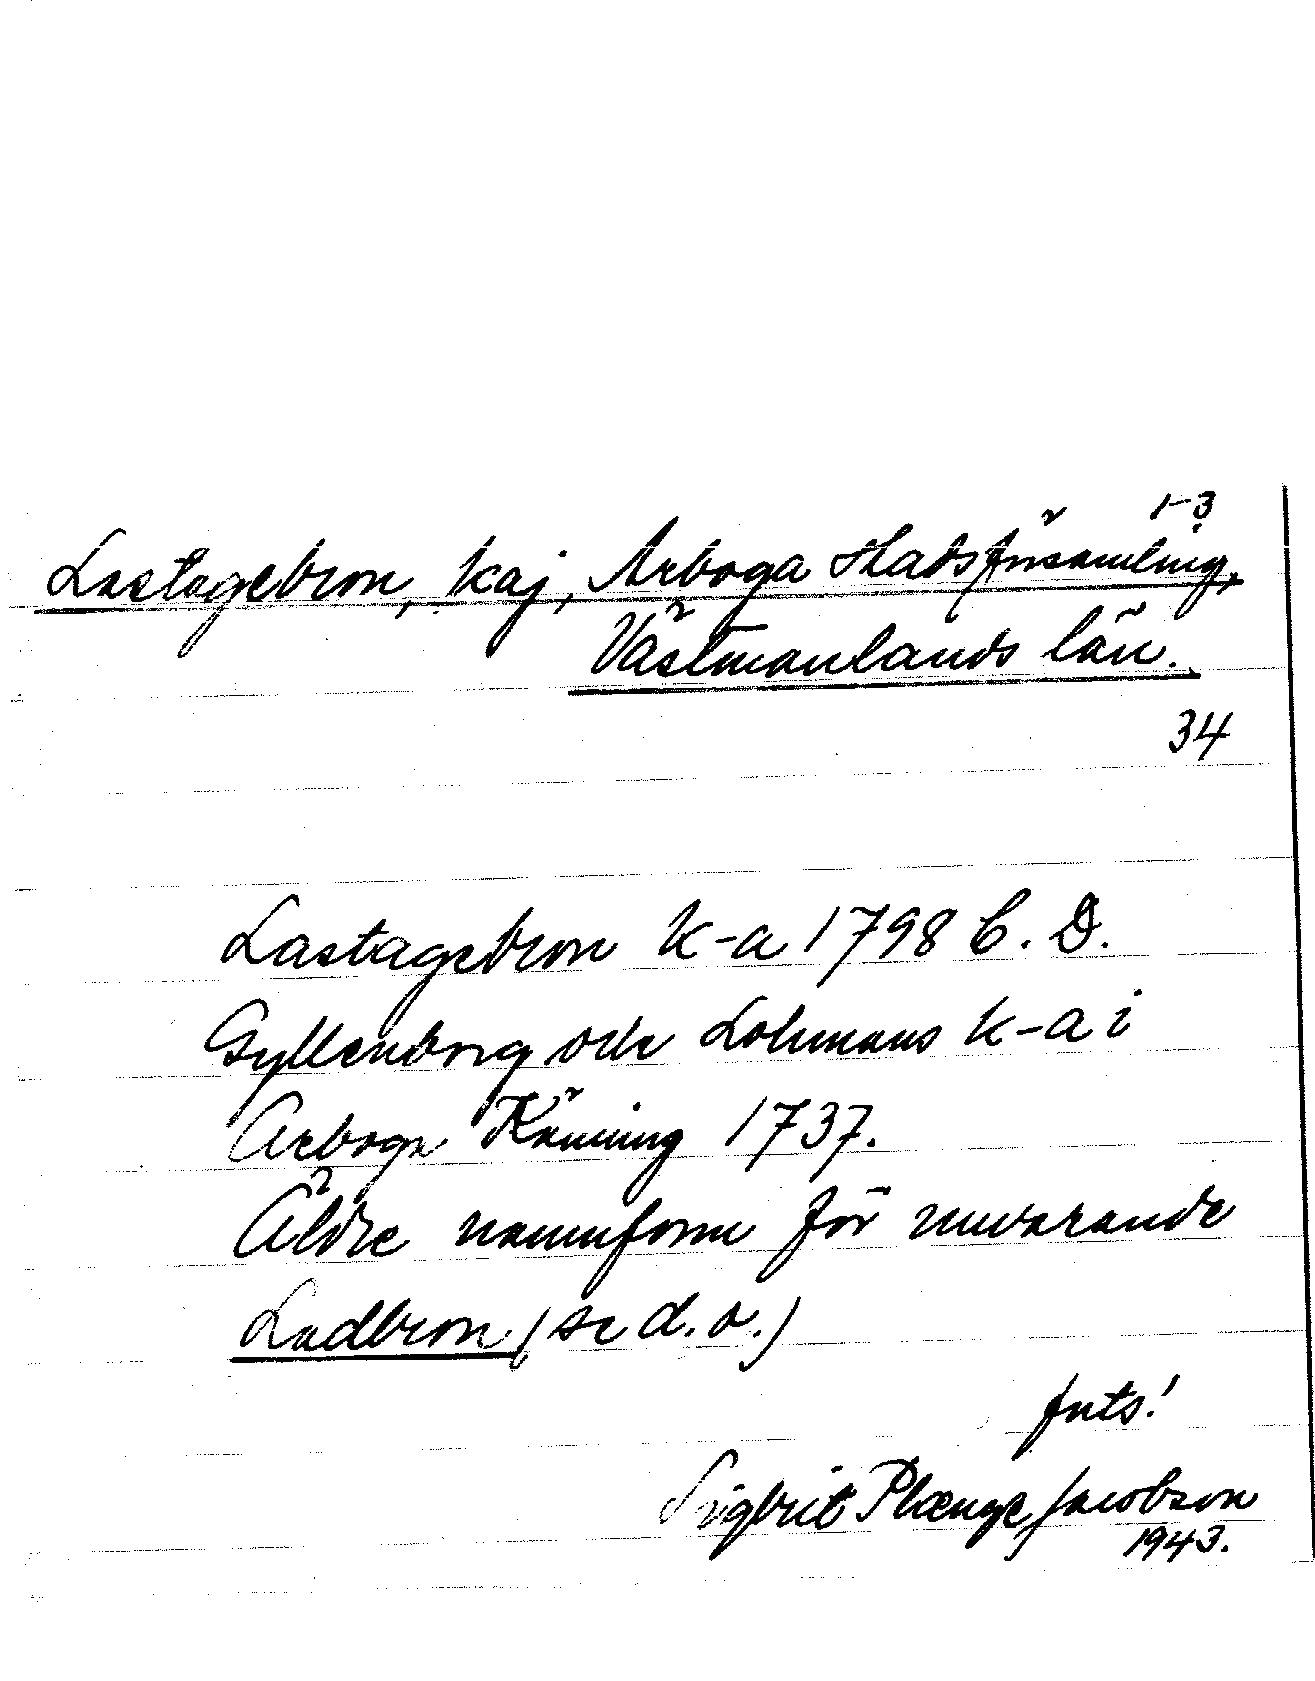 1-3
Lastagebron, kaj, Arboga stadsförsamling,
Västmanlands län.
34
Lastagebron k-a 1798 C. D.
Gyllenborg och Lohmans k-a i
Arboga Känning 1737.
Äldre namnform för nuvarande
Ladbron (se d.o.)
forts!
Sigbrit Plænge Jacobson
1943.